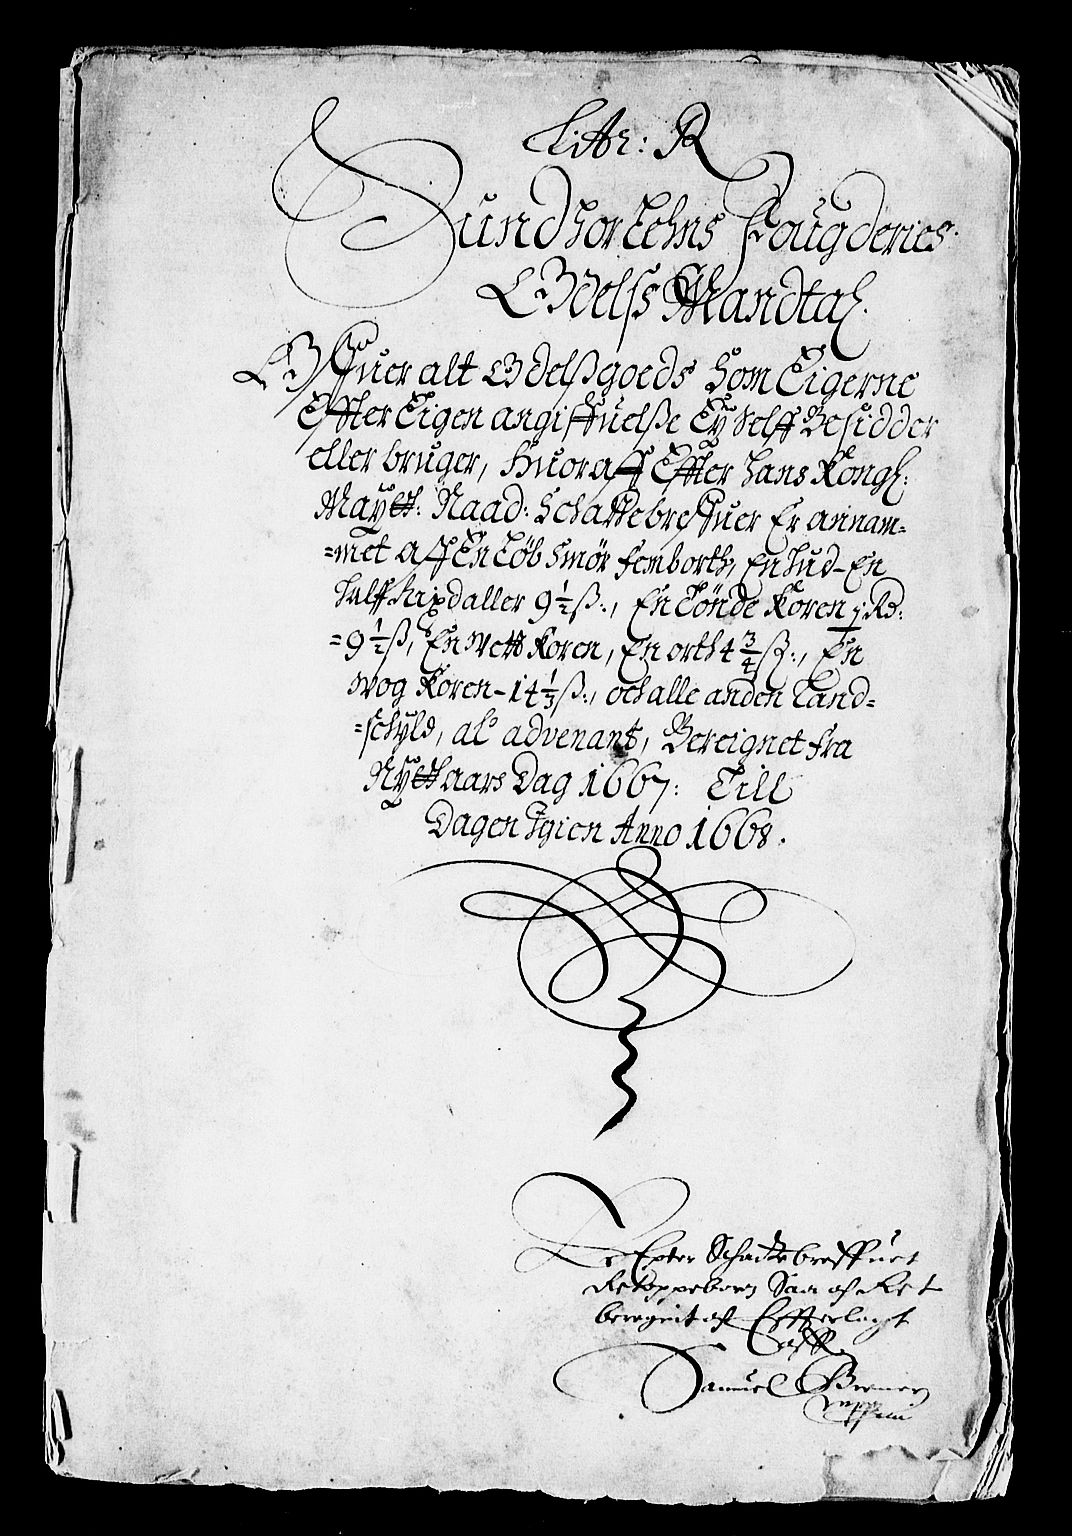 Litr: R
Sundhorlehns Fougderies
Odelss Mandtal.
Offuer alt Odelssgoeds Som Eigerne
Effter Eigen angiffuelsse Sig Selff Besidder
eller bruger, Huoraff Effter hans Kongl:
Maytt: Naad: Schattebreffuer Er annam-
=met aff En Løb Smör Femborth, En hud - En
halff Rixdaller 9 1/2 ß:, En Tönde Koren 1 Rd:
=9 1/2 ß, En Wett Koren, En orth 4 3/4 ß:, En
wog Koren - 14 1/3 ß:, och alle anden Land=
=schyld, al advenant, Bereignet fra
Nyttaars Dag 1667: Till
Dagen Igien Anno 1668.
Er Epter Schattebreffuet
saa af
beregnit af Effterlagt
aff
Samuel